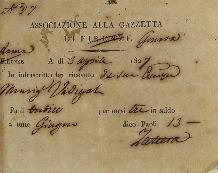 N. 27
ASSOCIAZIONE ALLA GAZZETTA
DI FIRENZE Genova
Roma
FIRENZE A dì 3 aprile 1827
Io infrascritto ho ricevuto da Sua
Monsig.
Paoli tredici per mesi tre in saldo
a tutto Giugno dico Paoli 13 —